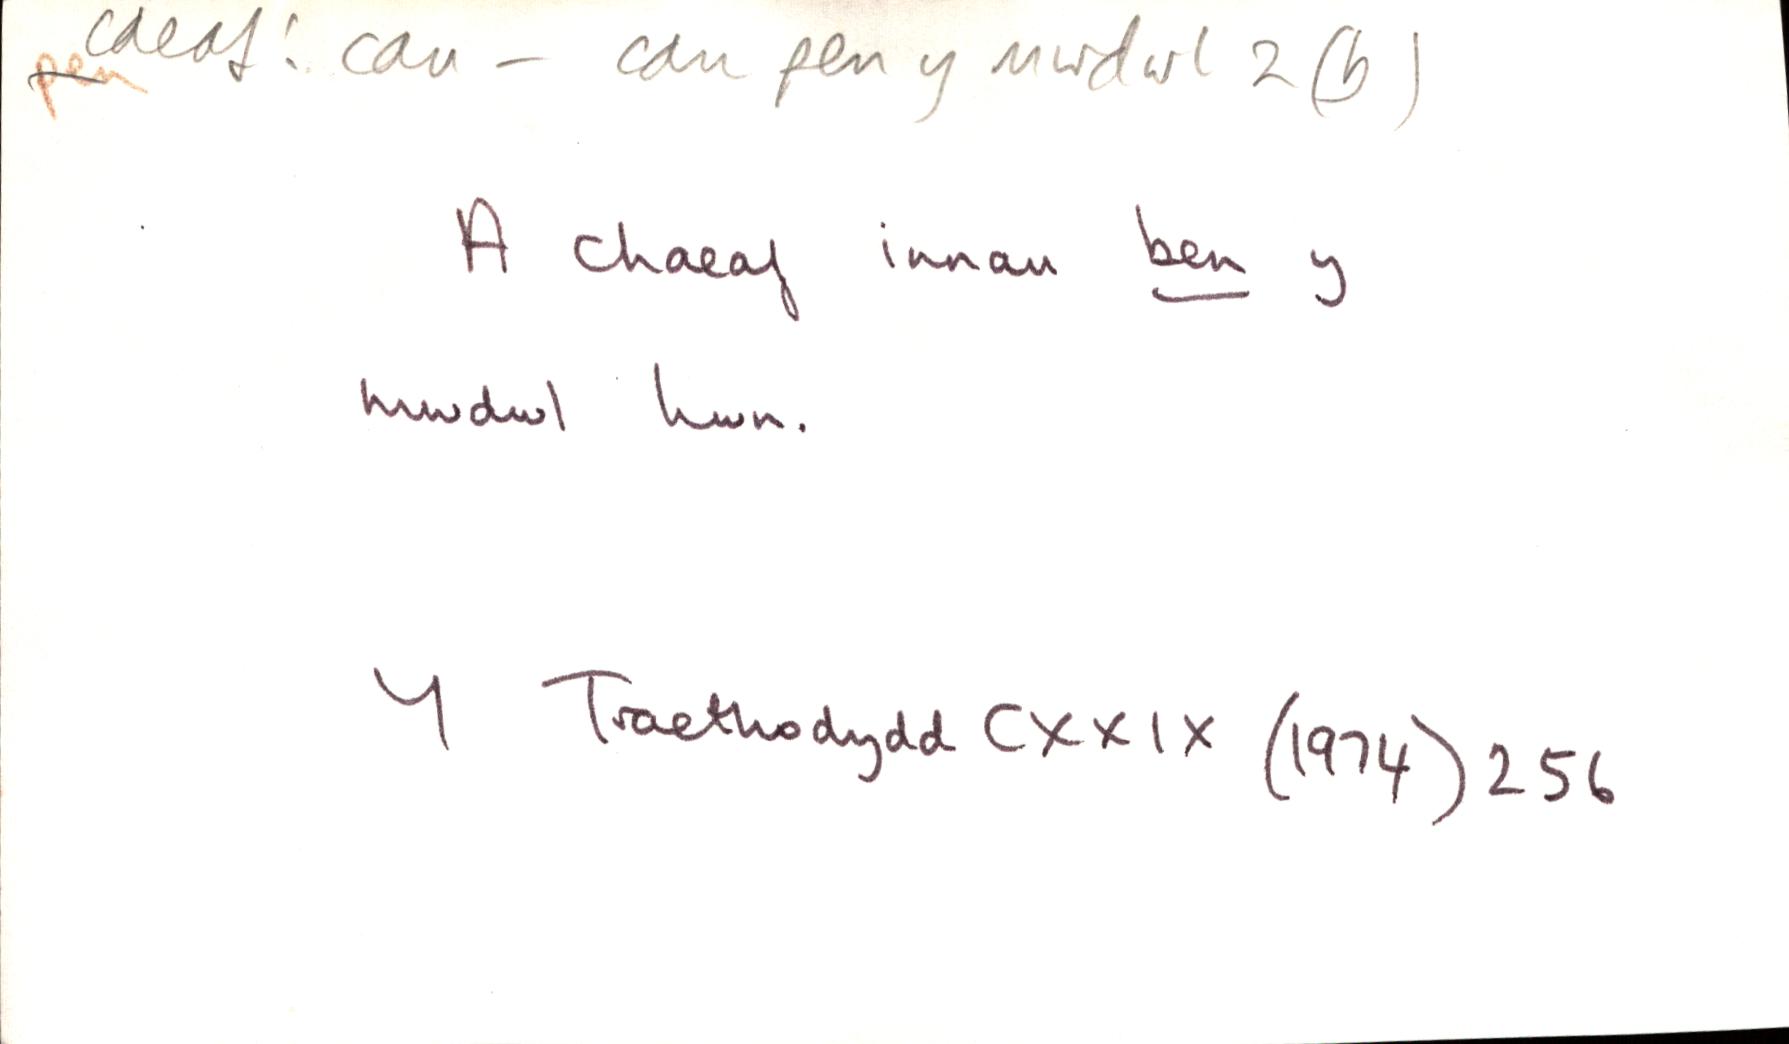 caeaf: cau – cau pen y mwdwl 2(b)
pen
A chaeaf innau ben y
mwdwl hwn.
Y Traethodydd CXXIX (1974) 256